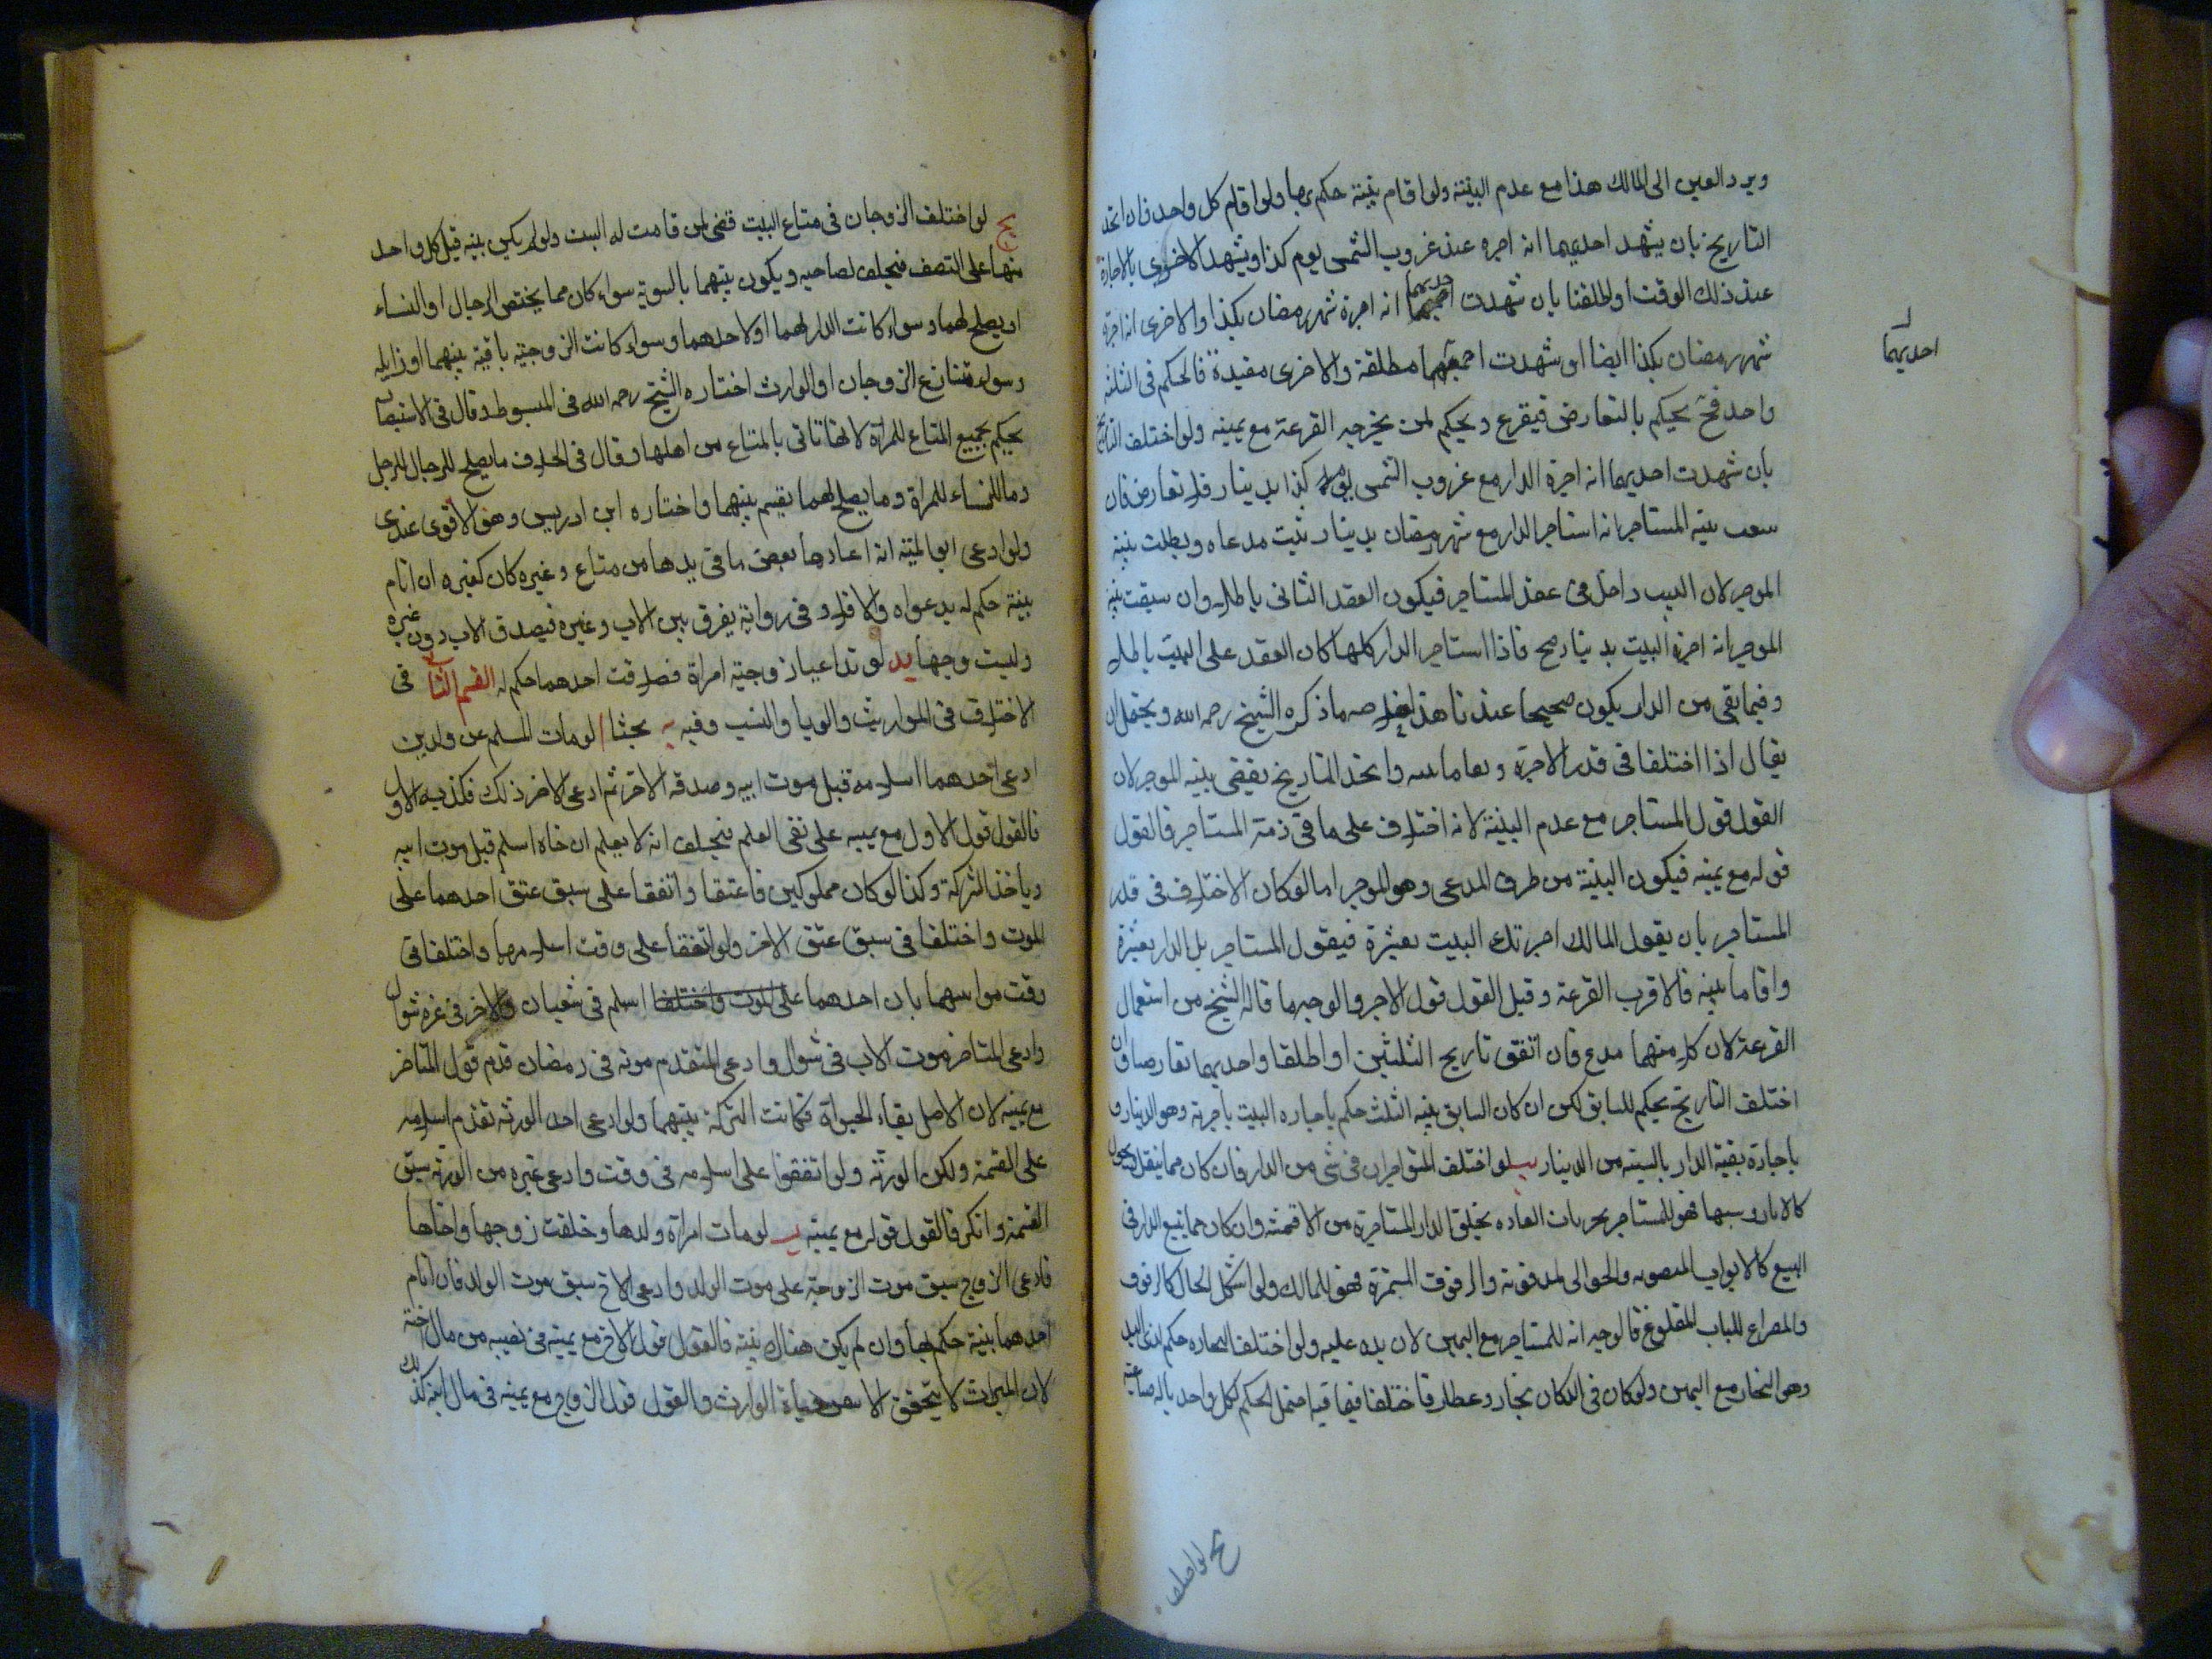 ويرد العين الى المالك هذا مع عدم البينة ولو اقام بينة حكم بها ولو اقام كل واحد فان اتحد
التاريخ بان يشهد احديهما انه اجره عند غروب الشمس يوم كذا ويشهد الاخرى بالاجارة
عند ذلك الوقت او اطلقتا بان شهدت احديهما انه اجرة شهر رمضان بكذا والاخرى انه اجره
احديهما
شهر رمضان بكذا ايضا او شهدت احديهما مطلقة والاخرى مقيدة فالحكم فى الثلثة
واحد فح يحكم بالتعارض فيقرع ويحكم لمن يخرجه القرعة مع يمينه ولو اختلف التاريخ
بان شهدت احديهما انه اجرة الدار مع غروب الشمس يوم كذا بدينار فلا تعارض فان
سبقت بينة المستاجر انه استاجر الدار مع شهر رمضان بدينار ثبت مدعاه وبطلت بينة
الموجر لان البيت داخل فى عقد المستاجر فيكون العقد الثانى باطلا وان سبقت بينة
الموجر انه اجره البيت بدينار صح فاذا استاجر الدار كلها كان العقد على البيت باطلا
وفيما بقى من الدار يكون صحيحا عندنا هذا خلاصه ما ذكره الشيخ رحمه الله ويحتمل ان
يقال اذا اختلفا فى قدر الاجرة واقاما بينه واتحد التاريخ يقضى ببينه الموجر لان
القول قول المستاجر مع عدم البينة لانه اختلاف على ما فى ذمة المستاجر فالقول
قوله مع يمينه فيكون البينة من طرف المدعى وهو الموجر اما لو كان الاختلاف فى قدر
المستاجر بان يقول المالك اجرتك البيت بعشرة فيقول المستاجر بل الدار بعشرة
واقاما بينه فالاقرب القرعة وقيل القول قول الاجر والوجه ما قاله الشيخ من استعمال
القرعة لان كلا منهما مدع فان اتفق تاريح البينتين او اطلقا واحديهما تعارضا وان
اختلف التاريخ يحكم للسابق لكن ان كان السابق بينه البيت حكم باجاره البيت باجرته وهو الدينار و
باجارة بقية الدار بالنسبه من الدينار يب لو اختلف المتواجران فى شئ من الدار فان كان مما ينقل ويحول
كالاثاث وشبهها فهو للمستاجر بجريان العاده بخلو الدار المستاجرة من الاقمشة وان كان مما يتبع الدار فى
البيع كالابواب المنصوبه والخوابى المدفونة والرفوف المسمرة فهو للمالك ولو اشكل الحال كالرفوف
والمصراع للباب المقلوع فالوجه انه للمستاجر مع اليمين لان يده عليه ولو اختلفا النجاره حكم لذى اليد
وهو النجار مع اليمين ولو كان فى الدكان نجار وعطار فاختلفا فيما فيه احتمل الحكم لكل واحد باله صناعته
يج لو اختلف
يج لو اختلف الزوجان فى متاع البيت قضى لمن قامت له البينة ولو لم يكن بينه قيل كل واحد
منهما على النصف فيحلف لصاحبه ويكون بينهما بالسوية سواء كان مما يختص الرجال او النساء
او يصلح لهما وسواء كانت الدار لهما او لاحدهما وسواء كانت الزوجية باقية بينهما او زايله
وسواء تنازع الزوجان او الوارث اختاره الشيخ رحمه الله فى المبسوط وقال فى الاستبصار
يحكم بجميع المتاع للمراة لانها تاتى بالمتاع من اهلها وقال فى الخلاف ما يصلح للرجال للرجل
وما للنساء للمراة وما يصلح لهما يقسم بينهما واختاره ابن ادريس وهو الاقوى عندى
ولو ادعى ابو الميتة انه اعارها بعض ما فى يدها من متاع وغيره كان كغيره ان اقام
بينة حكم له بدعواه والا فلا وفى رواية يفرق بين الاب وغيره فيصدق الاب دون غيره
وليست وجها يد لو تداعيا زوجية امراة فصدقت احدهما حكم له القسم الثانى فى
الاختلاف فى المواريث والوصايا والنسب وفيه يه بحثا ا لو مات المسلم عن ولدين
ادعى احدهما اسلامه قبل موت ابيه وصدقه الاخر ثم ادعى الاخر ذلك فكذبه الاول
فالقول قول الاول مع يمينه على نفى العلم فيحلف انه لا يعلم ان خاه اسلم قبل موت ابيه
وياخذ التركة وكذا لو كان مملوكين فاعتقا واتفقا على سبق عتق احدهما على
الموت واختلفا فى سبق عتق الاخر ولو اتفقا على وقت اسلامهما واختلفا فى
وقت موت ابيهما بان احدهما على الموت واختلفا اسلم فى شعبان والاخر فى غره شوال
وادعى المتاخر موت الاب فى شوال وادعى المتقدم موته فى رمضان قدم قول المتاخر
مع يمينه لان الاصل بقاء الحيوة فكانت التركة بينهما ولو ادعى احد الورثه تقدم اسلامه
على القسمة وانكر الورثة ولو اتفقوا على اسلامه فى وقت وادعى غيره من الورثه سبق
القسمة وانكر فالقول قوله مع يمينه ب لو مات امراة وولدها وخلفت زوجها واخاها
فادعى الزوج سبق موت الزوجة على موت الولد وادعى الاخ سبق موت الولد فان اقام
احدهما بينة حكم بها وان لم يكن هناك بينة فالقول قول الاخ مع يمينه فى نصيبه من مال اخته
لان الميراث لا يتحقق الا بعد حياة الوارث والقول قول الزوج مع يمينه فى مال ابنه كذلك